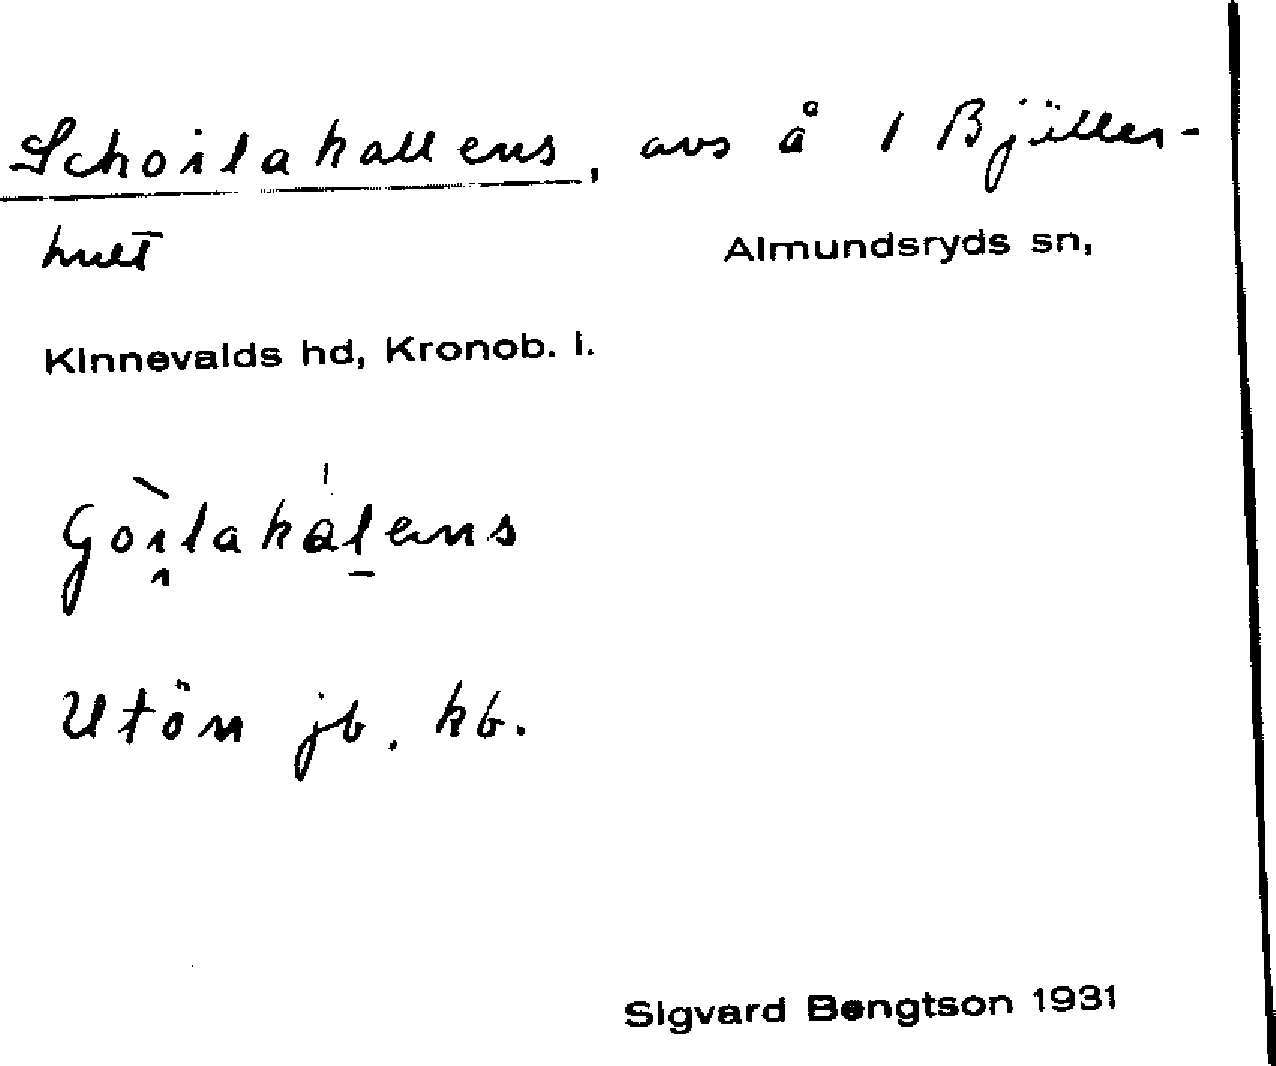 Schoilakallens, avs å 1 Bjiller-
hult Almundsryds sn,
Kinnevalds hd, Kronob. l.
Utön jb. kb.
Sigvard Bengtson 1931